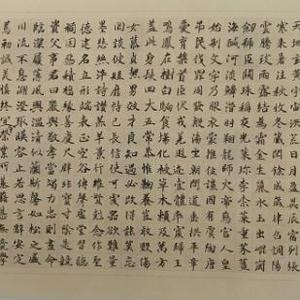 天地玄黃宇宙洪荒日月盈昃辰宿列張
寒來暑往秋收冬藏閏餘成歲律呂調陽
雲騰致雨露結為霜金生麗水玉出崑岡
劍號巨闕珠稱夜光果珍李柰菜重芥薑
海鹹河淡鱗潛羽翔龍師火帝鳥官人皇
始制文字乃服衣裳推位讓國有虞陶唐
弔民伐罪周發殷湯坐朝問道垂拱平章
愛育黎首臣伏戎羌遐邇壹體率賓歸王
鳴鳳在樹白駒食場化被草木賴及萬方
蓋此身髮四大五常恭惟鞠養豈敢毀傷
女慕貞絜男效才良知過必改得能莫忘
罔談彼短靡恃己長信使可覆器欲難量
墨悲絲染詩讚羔羊景行維賢克念作聖
德建名立形端表正空谷傳聲虛堂習聽
禍因惡積福緣善慶尺璧非寶寸陰是競
資父事君曰嚴與敬孝當竭力忠則盡命
臨深履薄夙興溫凊似蘭斯馨如松之盛
川流不息淵澄取映容止若思言辭安定
篤初誠美慎終宜令榮業所基籍甚無竟